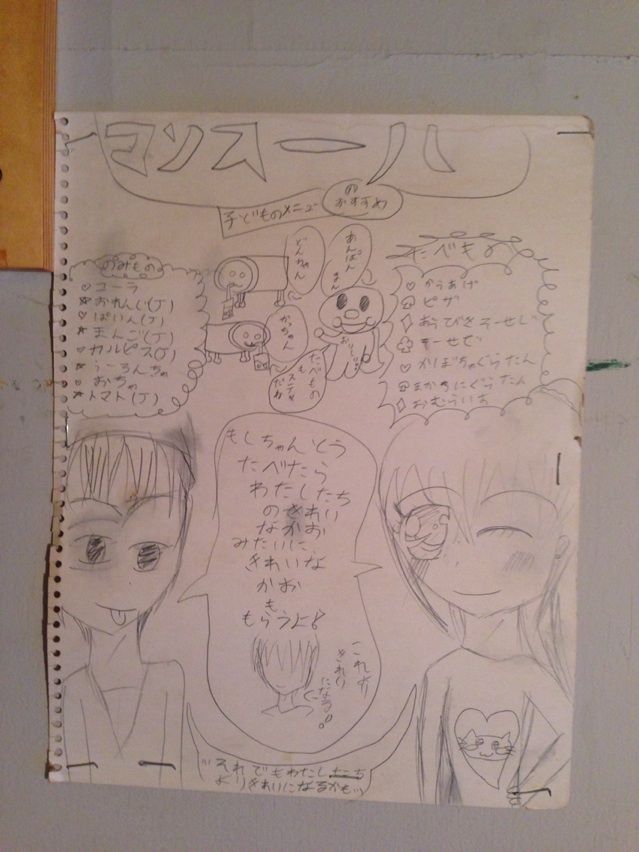 マンスール
子どものメニュー
の
おすすめ
のみもの
♡コーラ
★おれんじ(J)
♡ぱいん(J)
★まんご(J)
♡カルピス(J)
★うーろんちゃ
♡おちゃ
★トマト(J)
どんちゃん
かっちゃん
あんぱん
まん
たべもの
も
たべもの
♡からあげ
ピザ
♢あらびきそーせじ
♧そーせじ
♡かぼちゃぐらたん
まかろにぐらたん
♢おむらいす
もしちゃんとう
たべたら
わたしたち
のきれい
なかお
みたいに、
きれいな
かお
も
もらうよ
これが
きれい
になる
それでもわたしたち
よりきれいになるかも